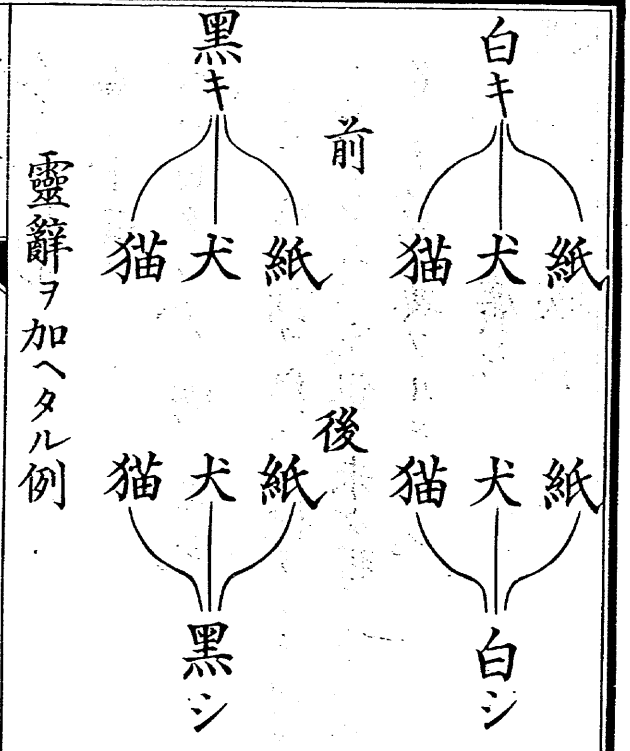 白キ
紙
犬
猫
前
黑キ
紙
犬
猫
紙
犬
猫
白シ
後
紙
犬
猫
黑シ
靈辭ヲ加ヘタル例